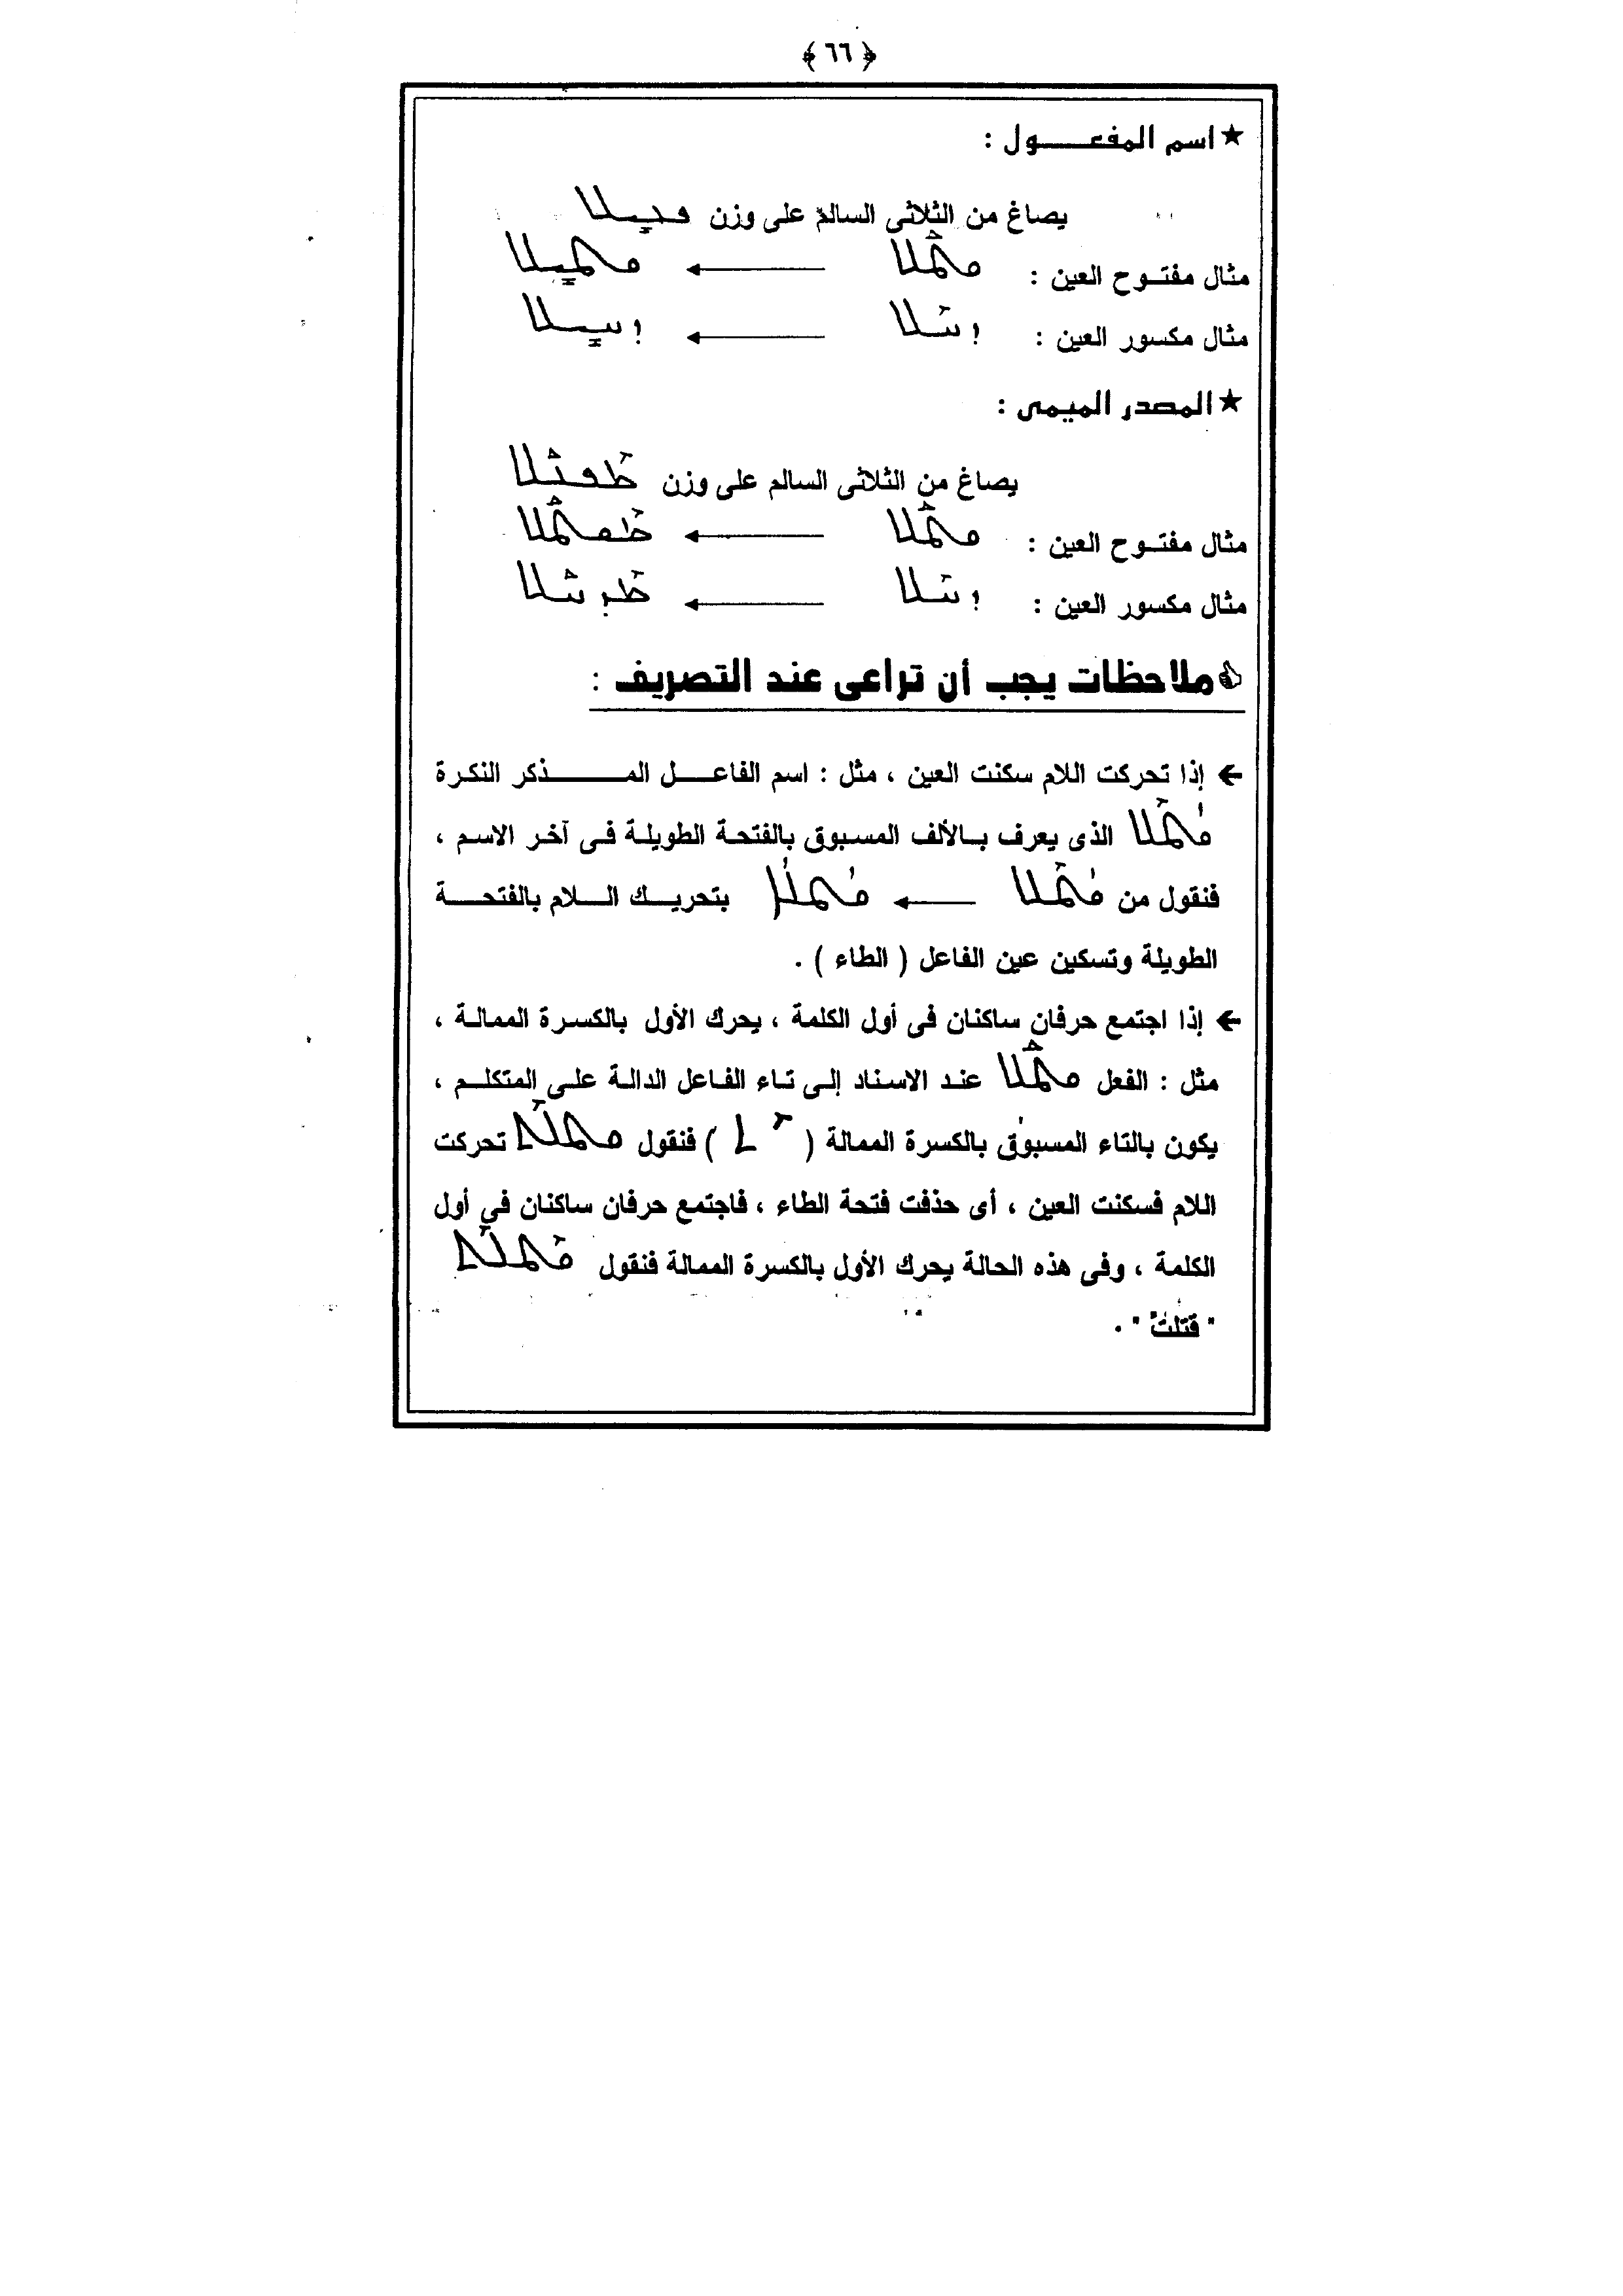 ﴿ ٦٦ ﴾
★ اسم المفعـــــول :
يصاغ من الثلاثى السالم على وزن ܦܥܺܝܠ
مثال مفتــوح العين : ܩܛܰܠ ← ܩܛܺܝܠ
مثال مكسور العين : ܕܚܶܠ ← ܕܚܺܝܠ
★ المصدر الميمى :
يصاغ من الثلاثى السالم على وزن ܡܶܦܥܰܠ
مثال مفتــوح العين : ܩܛܰܠ ← ܡܶܩܛܰܠ
مثال مكسور العين : ܕܚܶܠ ← ܡܶܕܚܰܠ
ملاحظات يجب أن تراعى عند التصريف :
← إذا تحركت اللام سكنت العين ، مثل : اسم الفاعــــل المـــــــذكر النكرة
ܩܳܛܶܠ الذى يعرف بــالألف المسبوق بالفتحة الطويلة فـى آخـر الاسـم ،
فنقول من ܩܳܛܶܠ ← ܩܳܛܠܳܐ بتحريـــك الـــلام بالفتحـــــة
الطويلة وتسكين عين الفاعل ( الطاء ) .
← إذا اجتمع حرفان ساكنان فى أول الكلمة ، يحرك الأول بالكسرة الممالـة ،
مثل : الفعل ܩܛܰܠ عنـد الاسناد إلـى تـاء الفـاعل الدالـة علـى المتكلـم ،
يكون بالتاء المسبوق بالكسرة الممالة ( ܶܬ ) فنقول ܩܛܠܶܬ تحركت
اللام فسكنت العين ، أى حذفت فتحة الطاء ، فاجتمع حرفان ساكنان في أول
الكلمة ، وفى هذه الحالة يحرك الأول بالكسرة الممالة فنقول ܩܶܛܠܶܬ
" قتلتُ " .